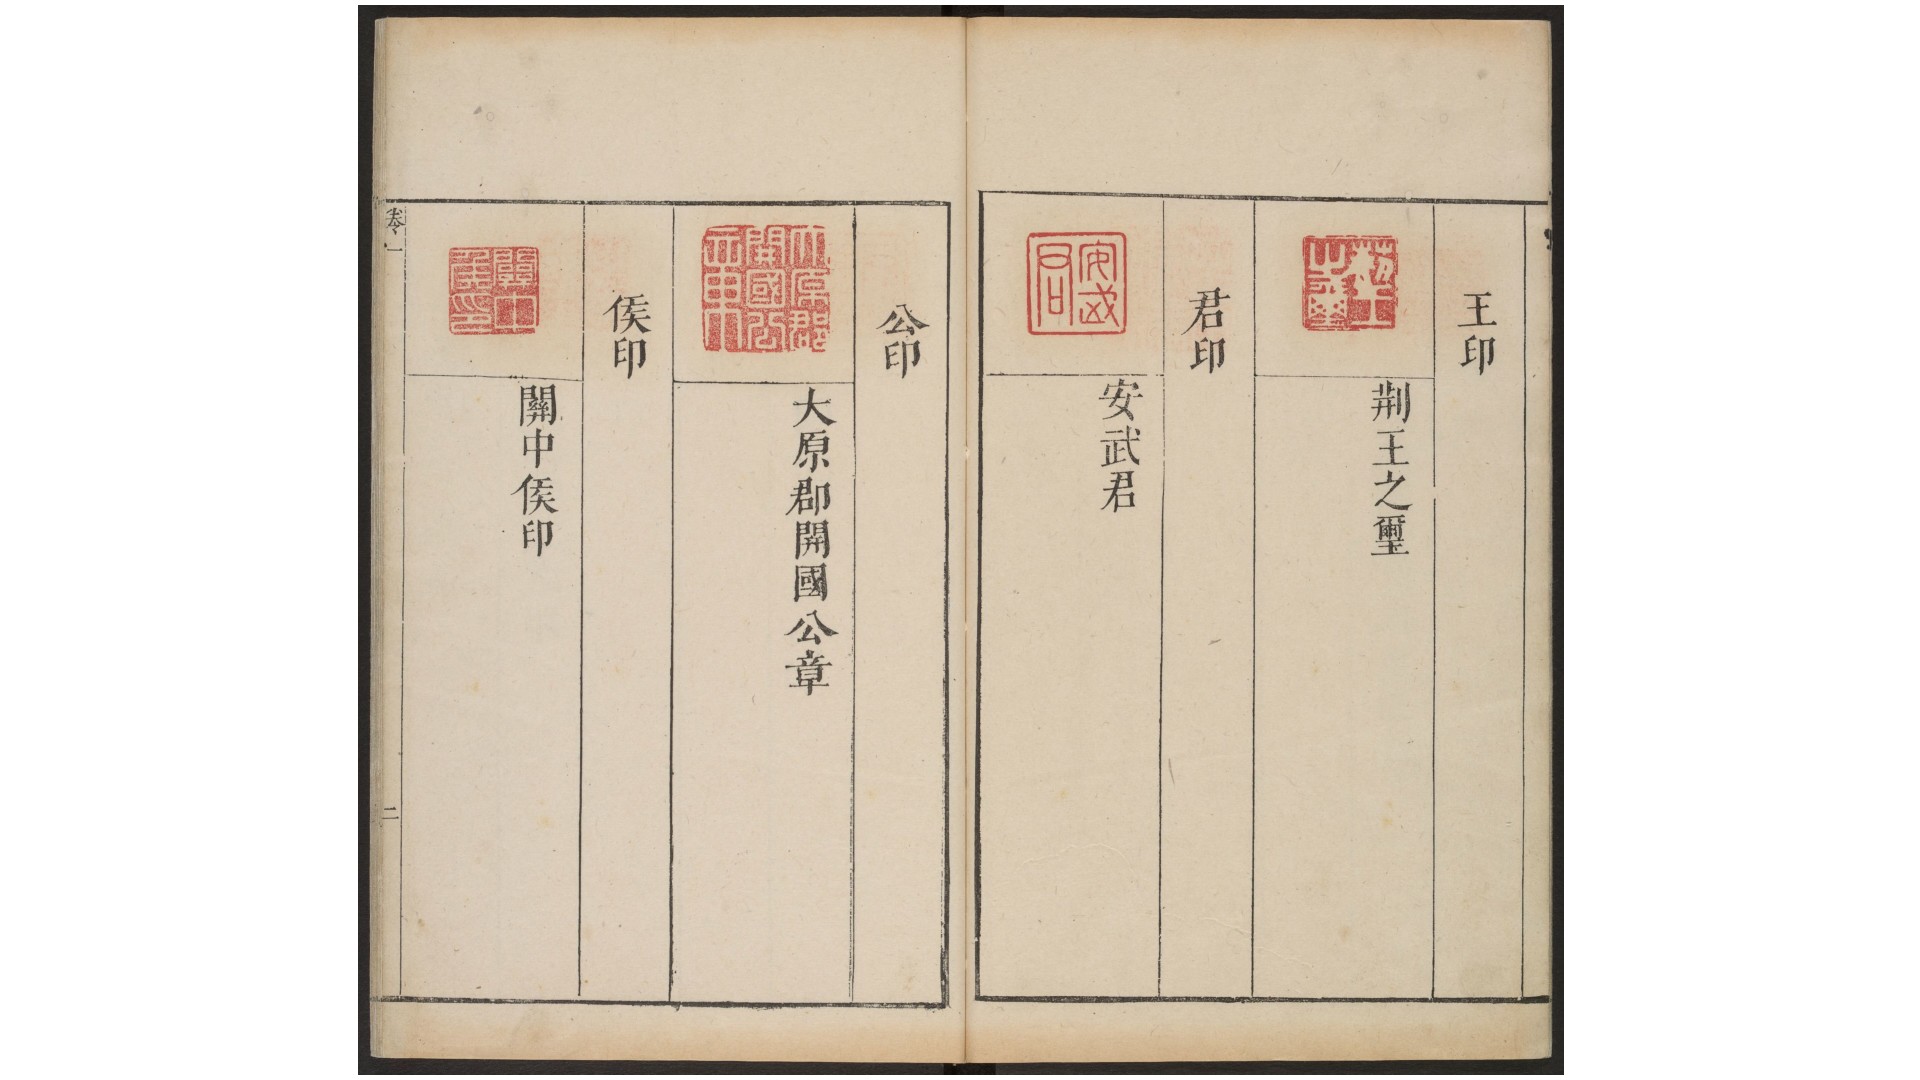 王印
荆王之璽
君印
安武君
公印
大原郡開國公章
侯印
關中侯印
卷一
二